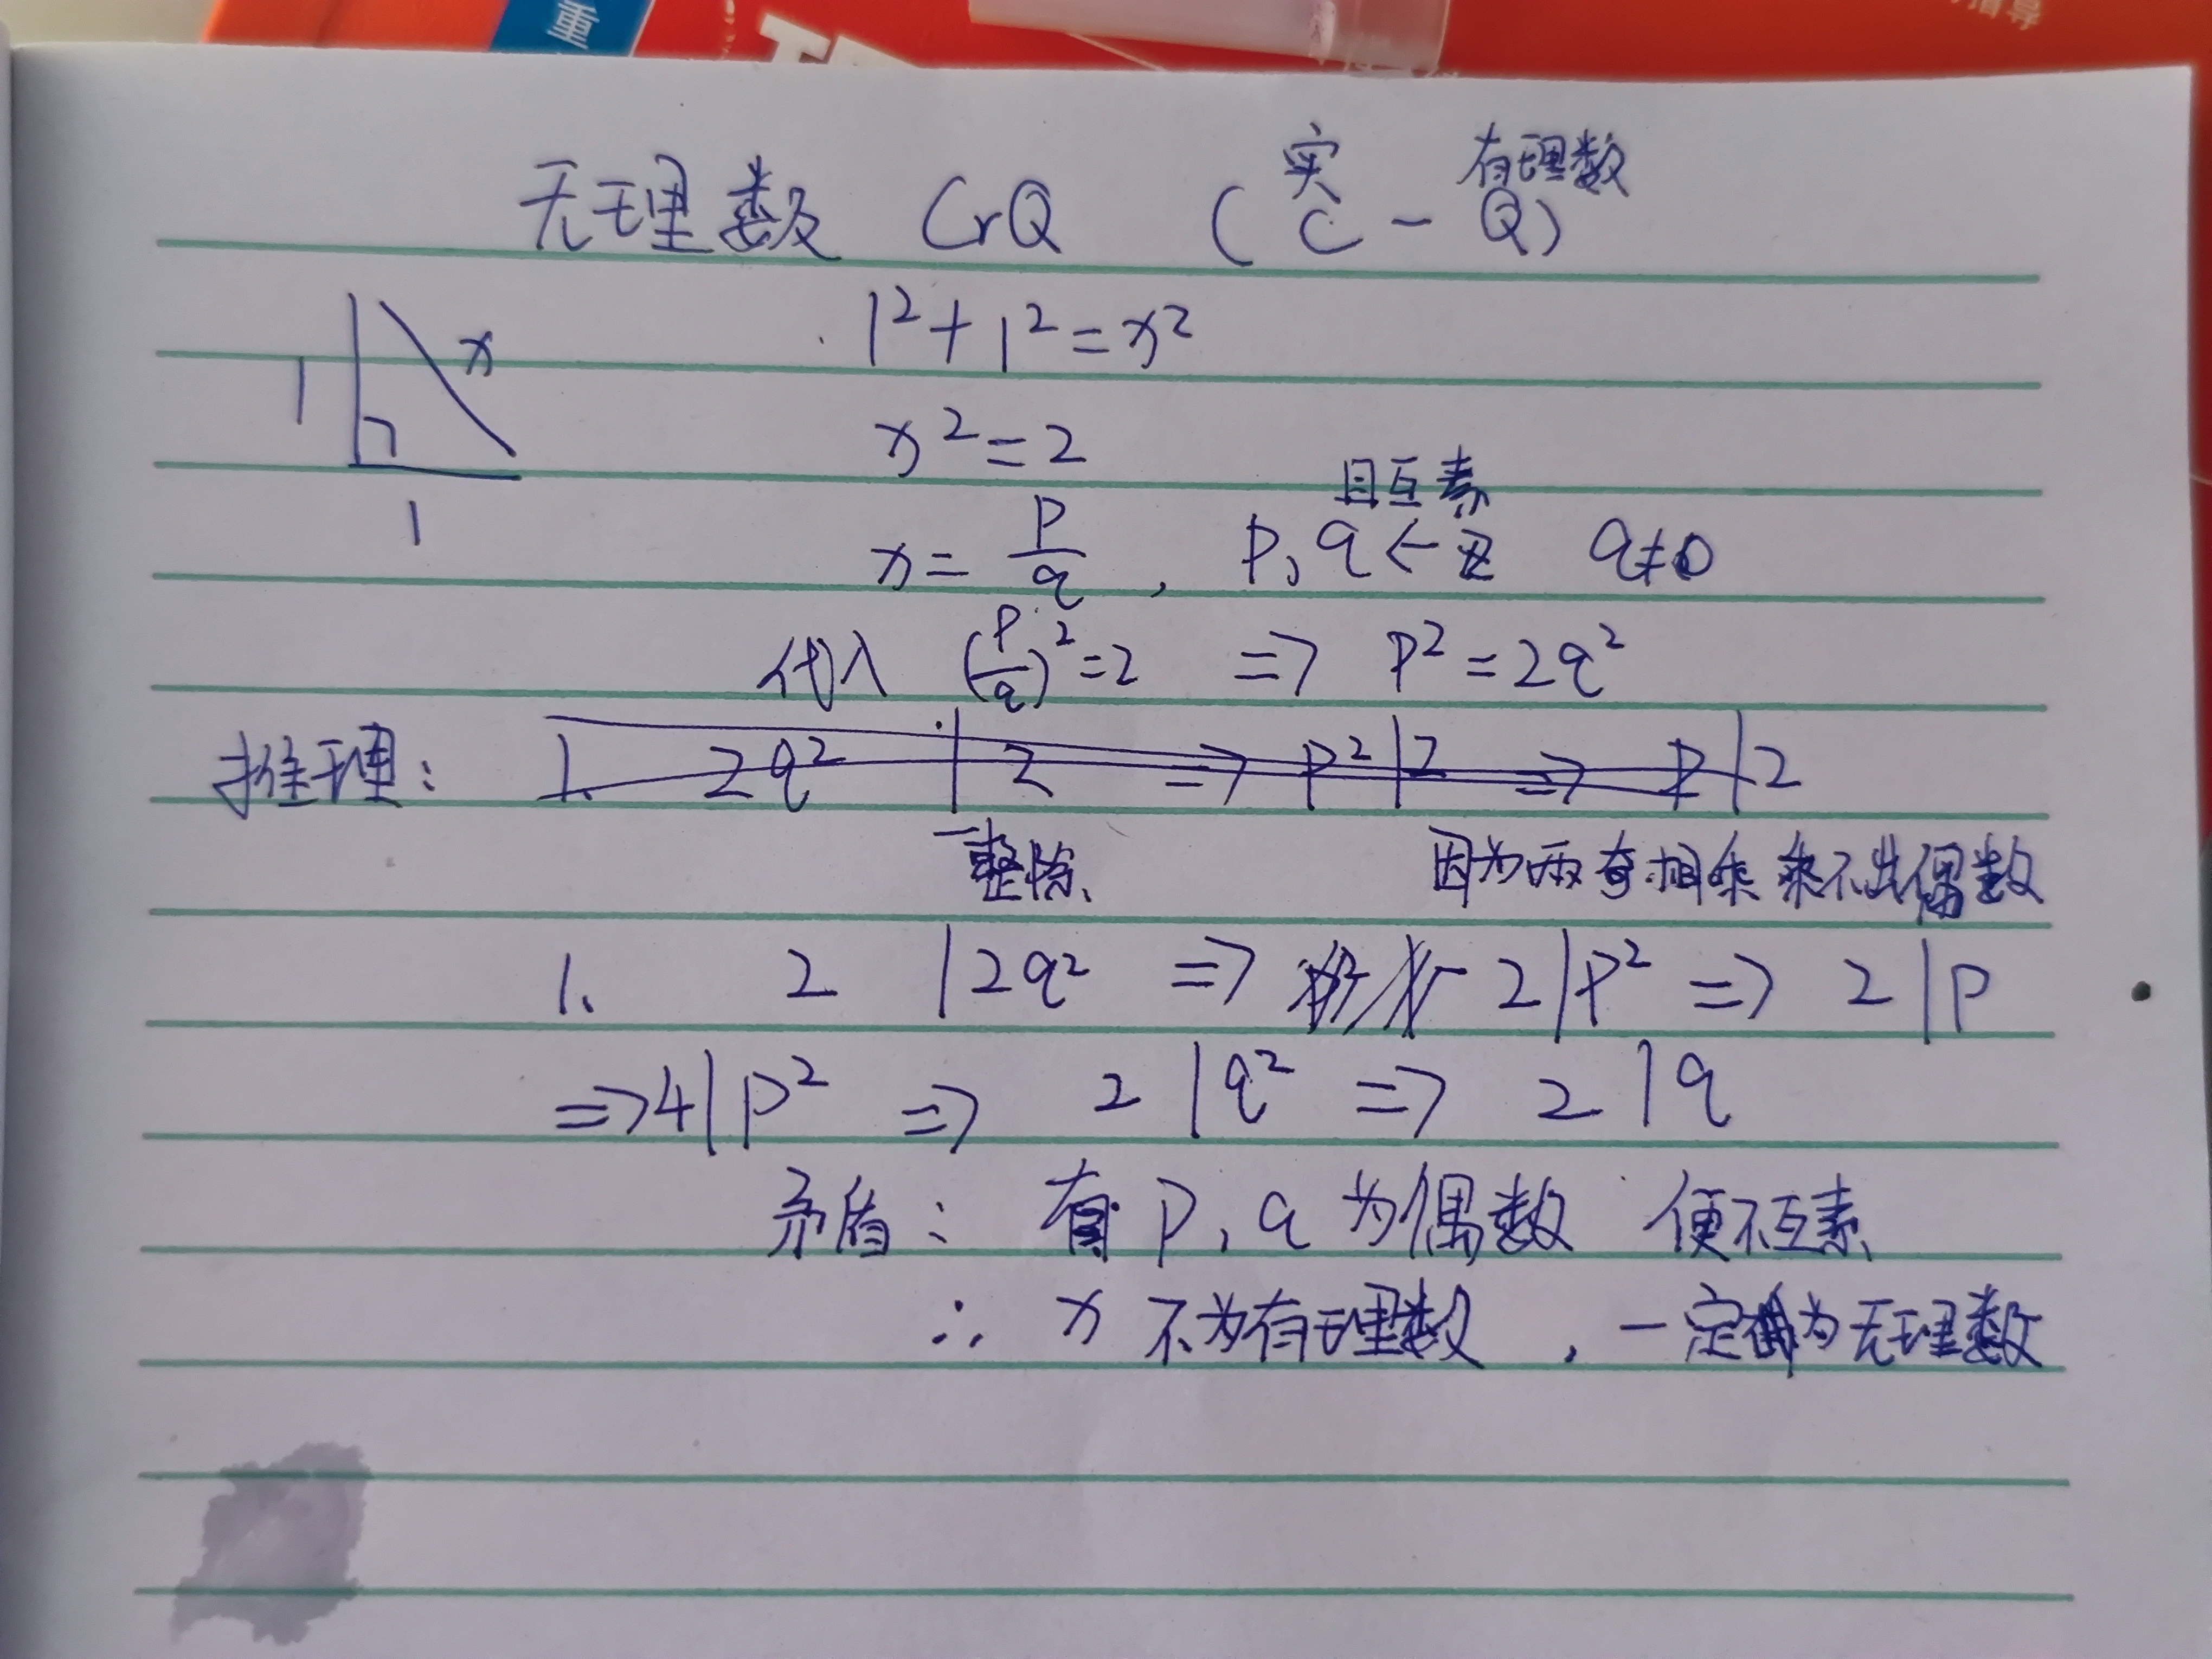 重
指导
实 有理数
无理数 CrQ (C - Q)
1² + 1² = x²
x
1
x² = 2
1
且互素
x = p/q , p, q ← Z q≠0
代入 (p/q)² = 2 => p² = 2q²
推理: 1. 2q² | 2 => p² | 2 => p | 2
整除 因为两奇相乘乘不出偶数
1. 2 | 2q² => 2 | p² => 2 | p
=> 4 | p² => 2 | q² => 2 | q
矛盾: 有 p, q 为偶数 便不互素
∴ x 不为有理数 , 一定为无理数